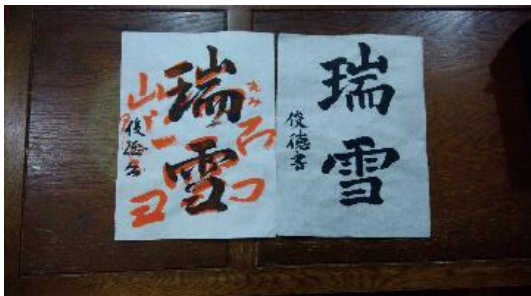 瑞雪
俊徳書
瑞雪
俊徳書